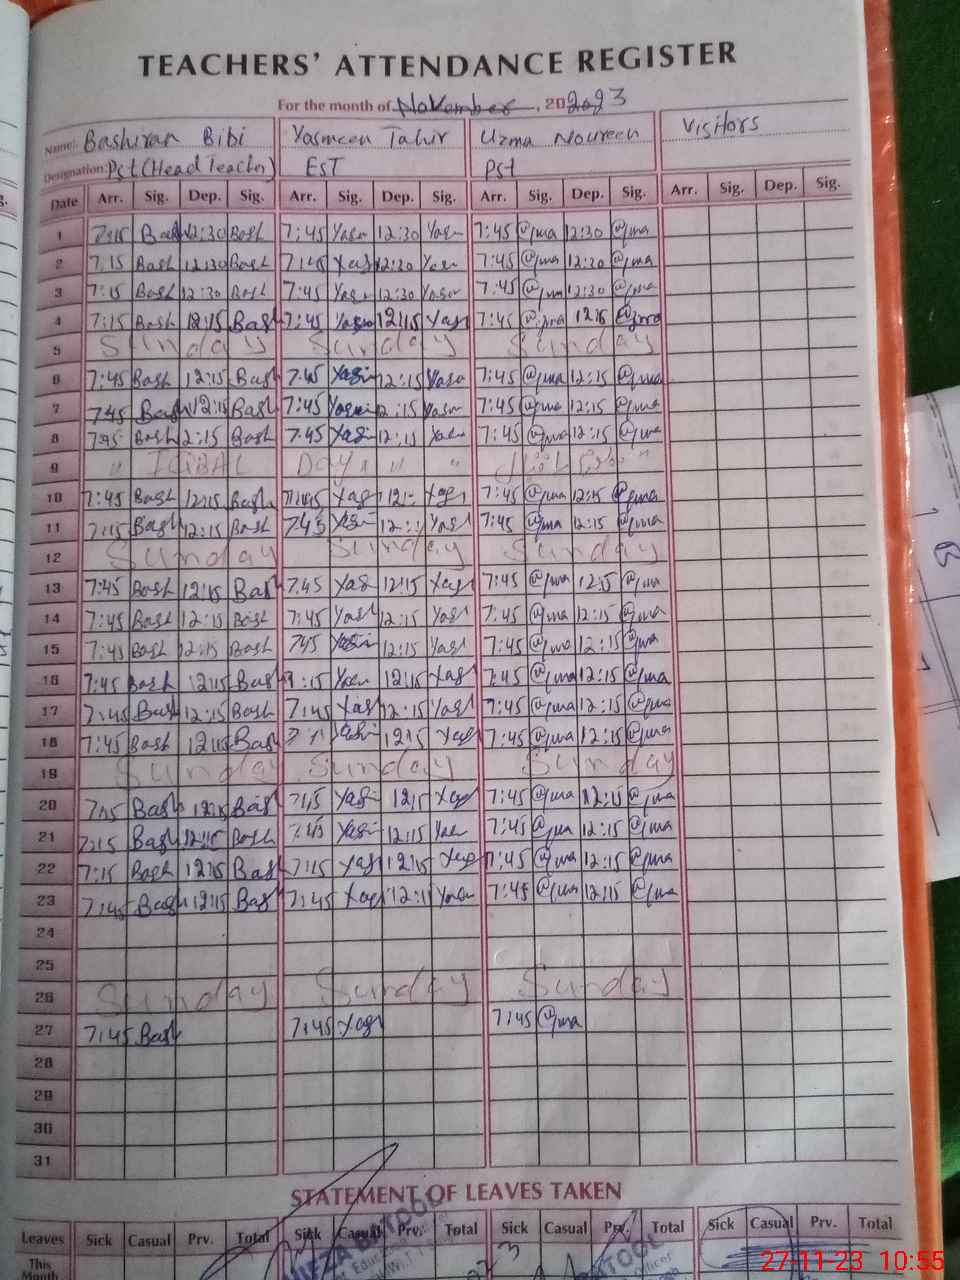 TEACHERS' ATTENDANCE REGISTER
For the month of November, 2023
Name: Bashiran Bibi Yasmeen Tahir Uzma Noureen Visitors
Designation: Pst (Head Teacher) EST Pst
Date Arr. Sig. Dep. Sig. Arr. Sig. Dep. Sig. Arr. Sig. Dep. Sig. Arr. Sig. Dep. Sig.
1 7:15 Bash 12:30 Bash 7:45 Yasm 12:30 Yasm 7:45 @ma 12:30 @ma
2 7:15 Bash 12:30 Bash 7:45 Yas 12:30 Yasm 7:45 @ma 12:30 @ma
3 7:15 Bash 12:30 Bash 7:45 Yasm 12:30 Yasm 7:45 @ma 12:30 @ma
4 7:15 Bash 12:15 Bash 7:45 Yasm 12:15 Yas 7:45 @ma 12:15 @ma
5 Sunday Sunday Sunday
6 7:45 Bash 12:15 Bash 7:45 Yasm 12:15 Yasm 7:45 @ma 12:15 @ma
7 7:45 Bash 12:15 Bash 7:45 Yasm 12:15 Yasm 7:45 @ma 12:15 @ma
8 7:45 Bash 12:15 Bash 7:45 Yas 12:15 Yasm 7:45 @ma 12:15 @ma
9 " IQBAL Day " " "
10 7:45 Bash 12:15 Bash Yas Yas 7:45 @ma 12:15 @ma
11 7:15 Bash 12:15 Bash 7:45 Yas Yas 7:45 @ma 12:15 @ma
12 Sunday Sunday Sunday
13 7:45 Bash 12:15 Bash 7:45 Yas 12:15 Yas 7:45 @ma 12:15 @ma
14 7:45 Bash 12:15 Bash 7:45 Yas 12:15 Yas 7:45 @ma 12:15 @ma
15 7:45 Bash 12:15 Bash 7:45 Yas 12:15 Yas 7:45 @ma 12:15 @ma
16 7:45 Bash 12:15 Bash Yas 12:15 Yas 7:45 @ma 12:15 @ma
17 7:45 Bash 12:15 Bash 7:45 Yas 12:15 Yas 7:45 @ma 12:15 @ma
18 7:45 Bash 12:15 Bash Yas 12:15 Yas 7:45 @ma 12:15 @ma
19 Sunday Sunday Sunday
20 7:15 Bash 12:15 Bash Yas 12:15 Yas 7:45 @ma 12:15 @ma
21 7:15 Bash 12:15 Bash Yas 12:15 Yas 7:45 @ma 12:15 @ma
22 7:15 Bash 12:15 Bash 7:15 Yas 12:15 Yas 7:45 @ma 12:15 @ma
23 7:45 Bash 12:15 Bash 7:45 Yas 12:15 Yas 7:45 @ma 12:15 @ma
24
25
26 Sunday Sunday Sunday
27 7:45 Bash 7:45 Yas 7:45 @ma
28
29
30
31
STATEMENT OF LEAVES TAKEN
Leaves Sick Casual Prv. Total Sick Casual Prv. Total Sick Casual Prv. Total Sick Casual Prv. Total
This
Month
27-11-23 10:55